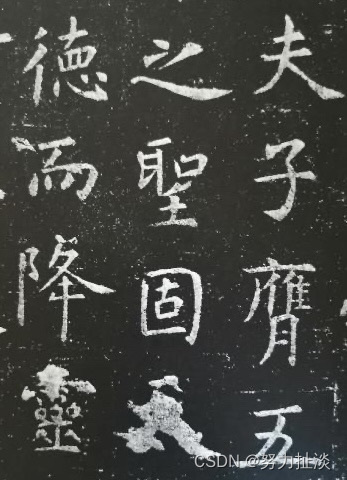 夫子膺五
之聖固
德而降靈
CSDN @努力扯淡